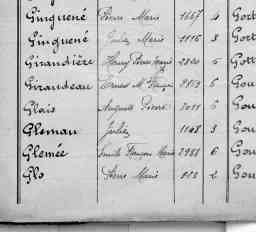 Ginguené Pierre Marie 1667 4 Gort
Ginguené Jules Marie 1116 3 Gort
Girandière Henry Pierre 2820 6 Gott
Giraudeau Ernest M 6 Gou
Glais Auguste Pierre 2011 5 Gou
Gleman Julien 1148 3 Gou
Glemée Emile François Marie 2988 6 Gou
Glo Marie 2 Gou